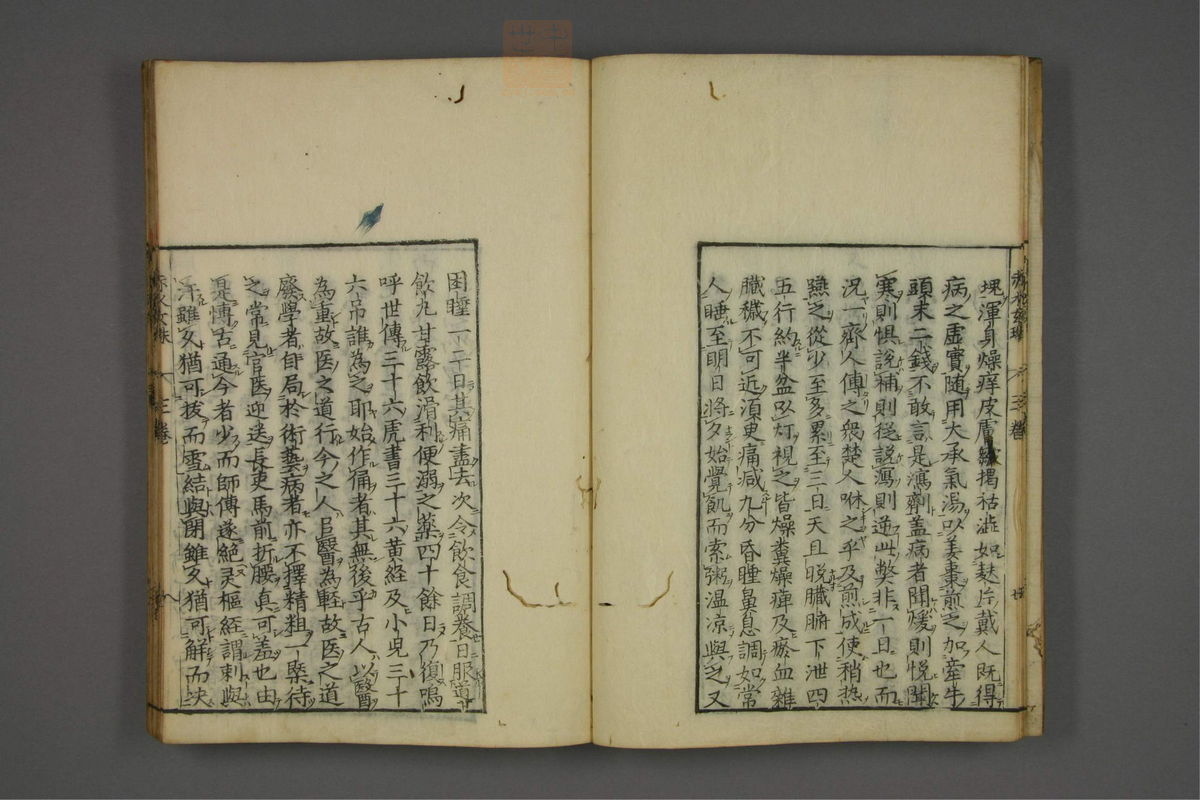 塊渾身燥痒皮膚皺揭枯澁如麸片戴人既得
病之虛實随用大承氣湯以姜棗煎之加牽牛
頭末二錢不敢言是瀉劑盖病者聞煖則悦聞
寒則惧說補則從說瀉則逆此弊非一日也而
况一齊人傅之衆楚人咻之乎及煎成使稍熱
嚥之從少至多累至三日天且晚臟腑下泄四
五行約半盆以灯視之皆燥糞燥痺及瘀血雜
臟穢不可近湏臾痛减九分昏睡鼻息調如常
人睡至明日將夕始覺飢而索粥温凉與之又
三卷
困睡一二日其痛盡去次令飲食調養日服導
飲丸甘露飲滑利便溺之薬四十餘日乃復嗚
呼世傳三十六虎書三十六黄経及小兒三十
六吊誰為之耶始作俑者其無後乎古人以醫
為重故医之道行今之人以醫為軽故医之道
廢學者自局於術藝病者亦不擇精粗一槩待
之常見官医迎送長吏馬前折腰真可羞也由
是慱古通今者少而師傳遂絶灵樞經謂刺與
汙雖久猶可拔而雪結與閉雖久猶可解而决
三卷